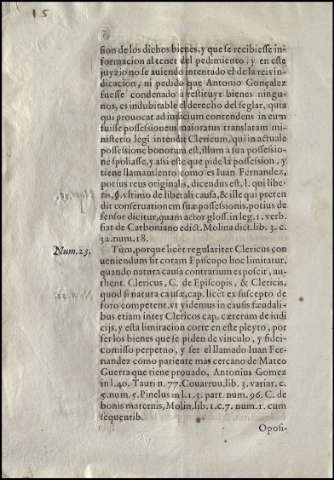 15
sion de los dichos bienes, y que se recibiesse in-
formacion al tenor del pedimiento, y en este
juyzio no se auiendo intentado el de la reivin
dicacion, ni pedido que Antonio Gonçalez
fuesse condenado a restituyr bienes ningu-
nos, es indubitable el derecho del seglar, quia
qui prouocat ad iudicium contendens in eum
fuisse possessionem maioratus translatam mi-
nisterio legi intendit Clericum, qui in actuale
possessione bonorum est, illum a sua possessio-
ne spoliasse, y assi este que pide la possession, y
tiene llamamiento como es Iuan Fernandez,
potius reus originalis, dicendus est, l. qui libe-
ris, §. vltimo de liberali causa, & ille qui preten
dit conseruationem in sua possessionis, potius de
fensor dicitur, quam actor gloss. in leg. 1. verb.
fiat de Carboniano edict. Molina dict. lib. 3. c.
32. num. 18.
Num. 23.
Tùm, porque licet regulariter Clericos con
ueniendum sit coram Episcopo hoc limitatur,
quando natura causa contrarium es poscit, au-
thent. Clericus, C. de Episcopis, & Clericis,
quod si natura causæ, cap. licet ex suscepto de
foro competent. vt videmus in causis feudali-
bus etiam inter Clericos cap. cæterum de iudi-
cijs, y esta limitacion corre en este pleyto, por
ser los bienes que se piden de vinculo, y fidei-
comisso perpetuo, y ser el llamado Iuan Fer-
nandez como pariente mas cercano de Mateo
Guerra que tiene prouado, Antonius Gomez
in l. 40. Tauri n. 77. Couarruu, lib. 3. variar. c.
5. num. 5. Pinelus in l. 1. 3. part. num. 96. C. de
bonis maternis, Molin. lib. 1. c. 7. num. 1. cum
sequentib.
Oposi-